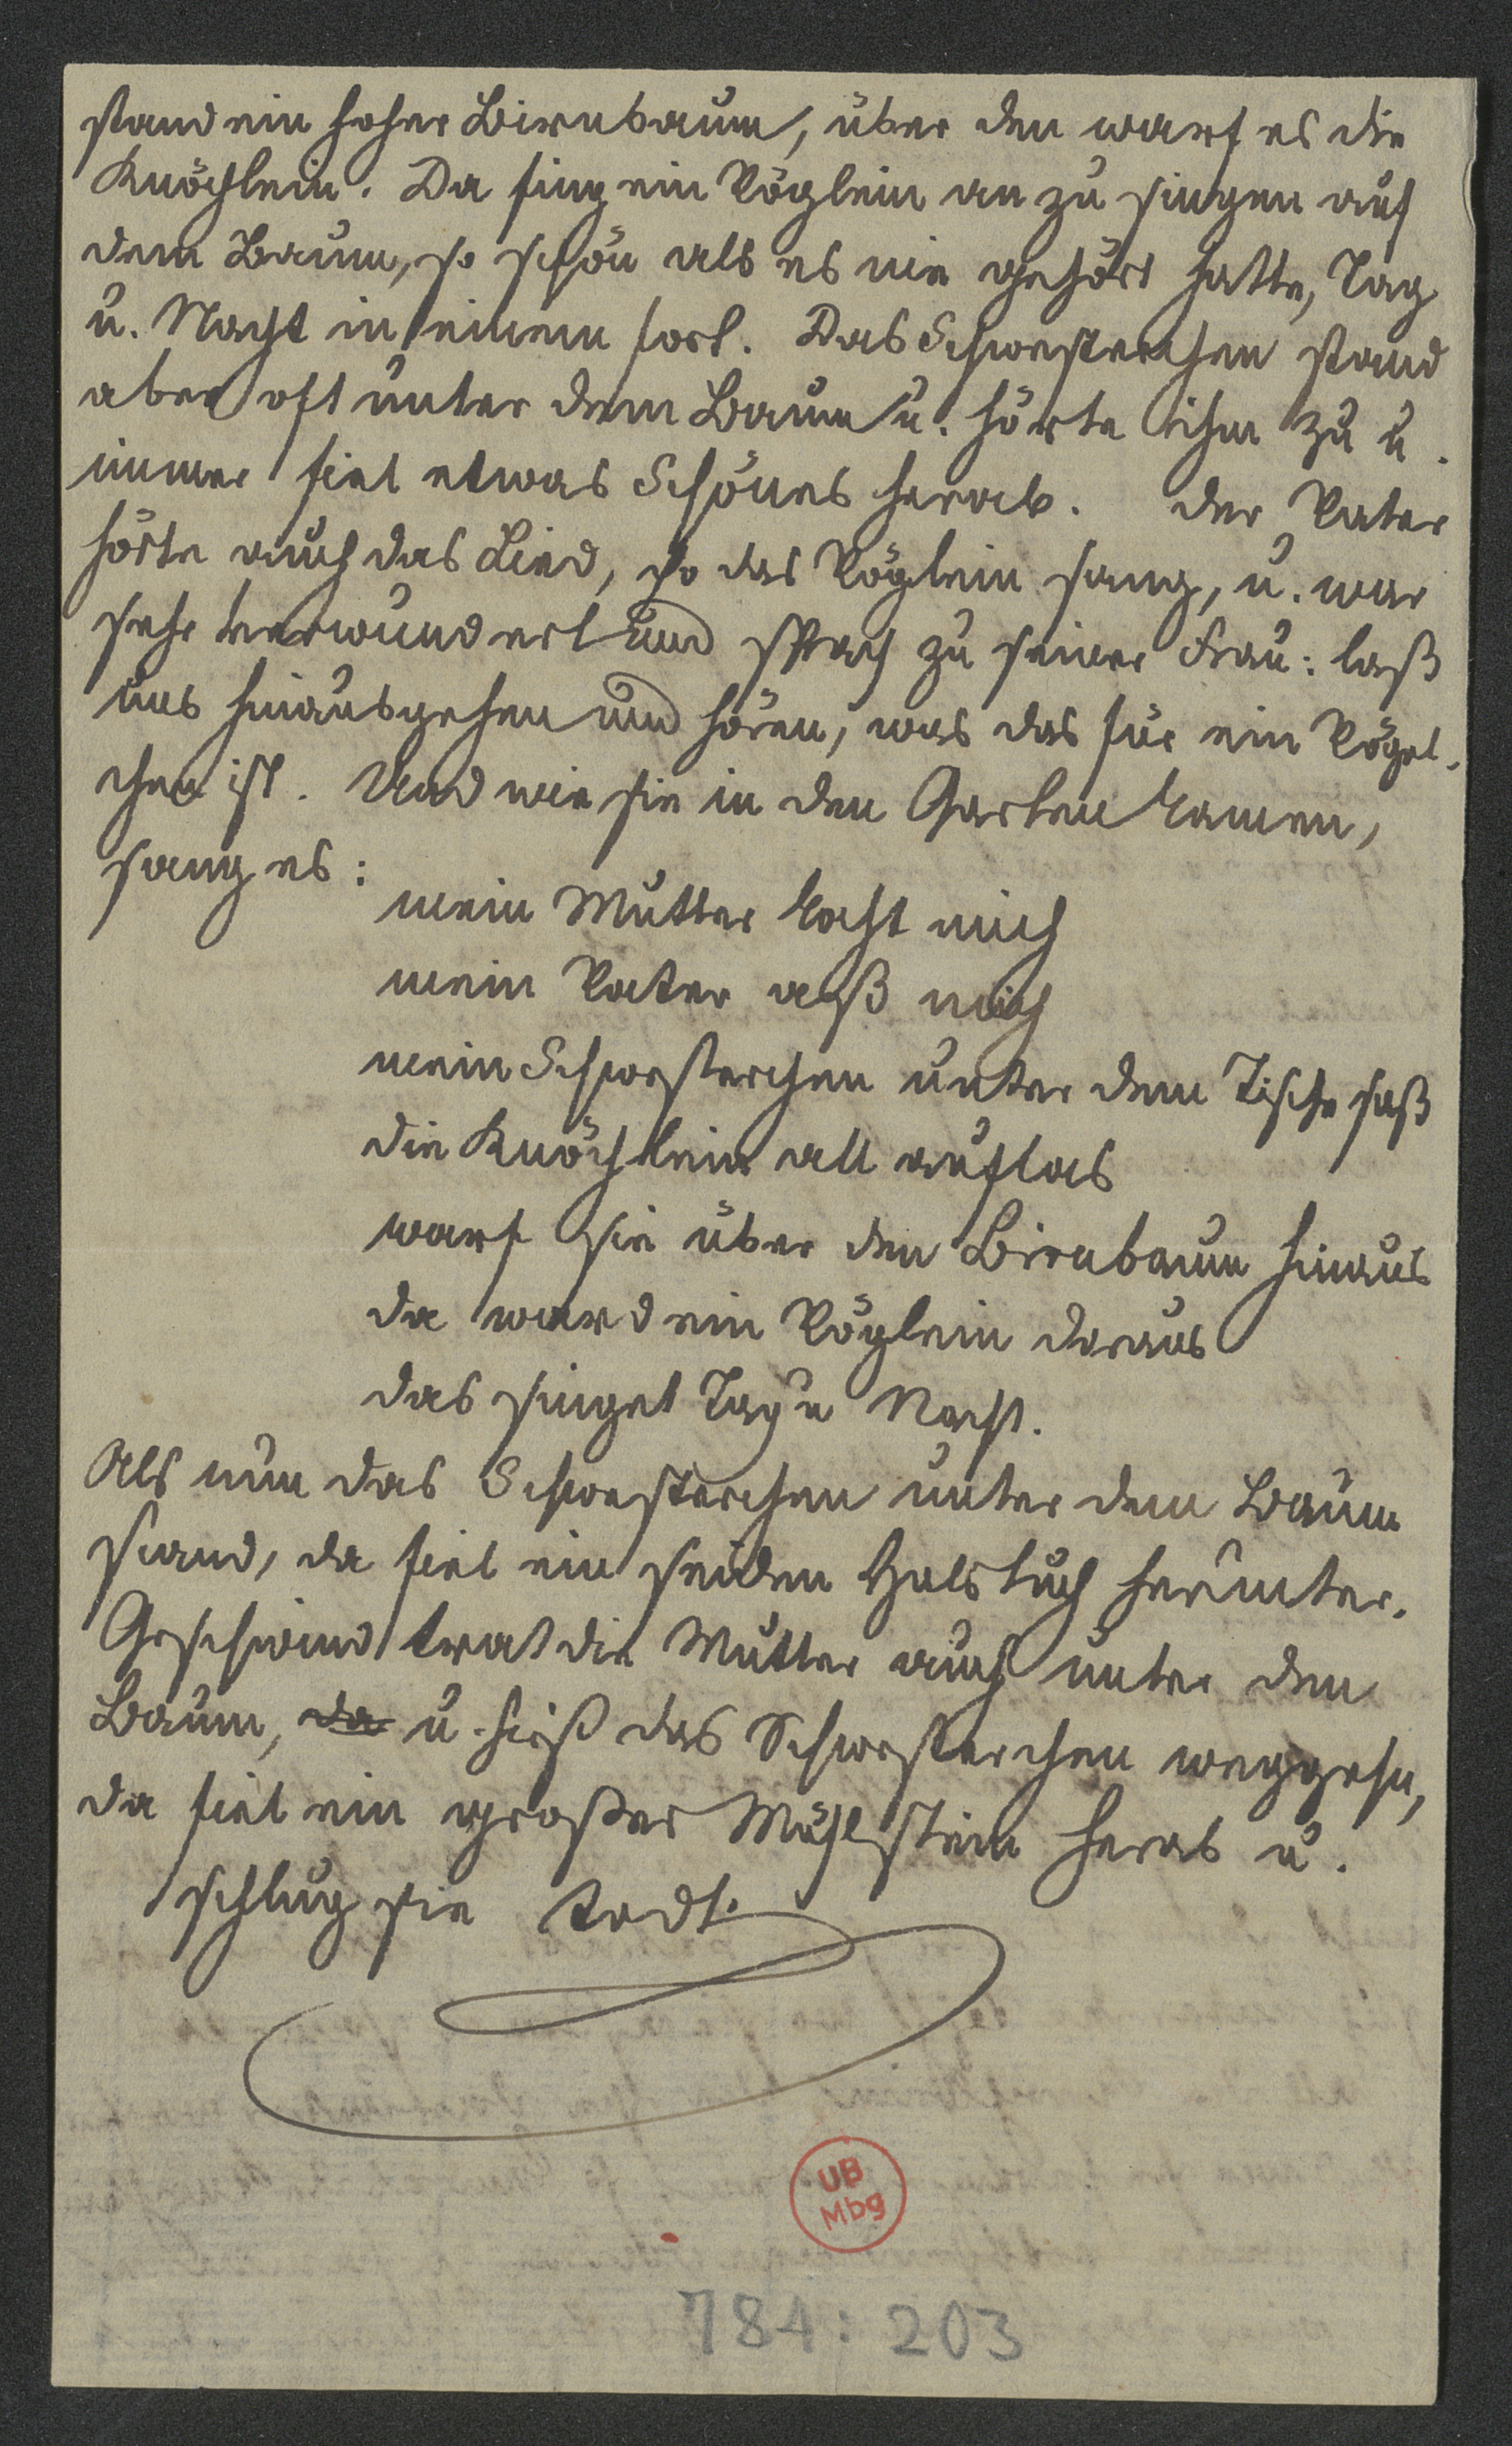 stand ein hoher Birnbaum, über den warf es die
Knöchlein. Da fing ein Vöglein an zu singen auf
dem Baum, so schön als es nie gehört hatte, Tag
u. Nacht in einem fort. Das Schwesterchen stand
aber oft unter dem Baum u. hörte ihm zu u.
immer fiel etwas Schönes herab. Der Vater
hörte auch das Lied, so das Vöglein sang, u. war
sehr verwundert und sprach zu seiner Frau: laß
uns hinausgehen und hören, was das für ein Vögel-
chen ist. Und wie sie in den Garten kamen,
sang es:
mein Mutter kocht mich
mein Vater aß mich
mein Schwesterchen unter dem Tische saß
die Knöchlein all auflas
warf sie über den Birnbaum hinaus
da ward ein Vöglein daraus
das singet Tag u Nacht.
Als nun das Schwesterchen unter dem Baum
stand, da fiel ein seiden Halstuch herunter.
Geschwind trat die Mutter auch unter den
Baum, da u. hieß das Schwesterchen weggehn,
da fiel ein großer Mühlstein herab u.
schlug sie todt.
UB
Mbg
784: 203